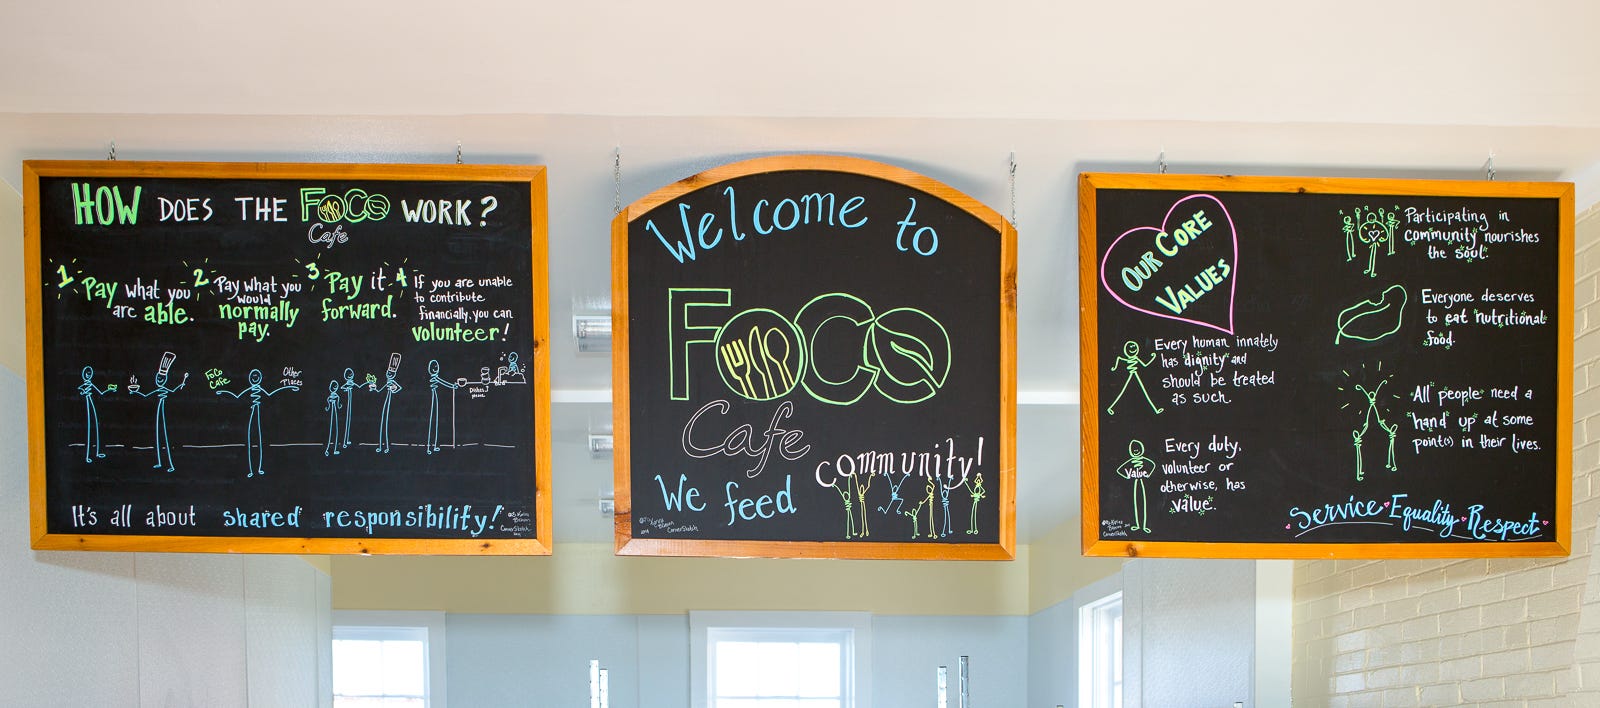 HOW DOES THE FoCo WORK?
Cafe
1 Pay what you
are able.
2 Pay what you
would
normally
pay.
3 Pay it
forward.
4 If you are unable
to contribute
financially, you can
volunteer!
FoCo
Cafe
Other
Places
Dishes
please
It's all about shared responsibility!
Welcome to
FoCo
Cafe
We feed community!
OUR CORE
VALUES
Every human innately
has "dignity" and
should be treated
as such.
Value
Every duty,
volunteer or
otherwise, has
"value."
Participating in
"community" nourishes
the soul.
Everyone deserves
to eat nutritional
food.
"All people" need a
"hand up" at some
point(s) in their lives.
Service Equality Respect